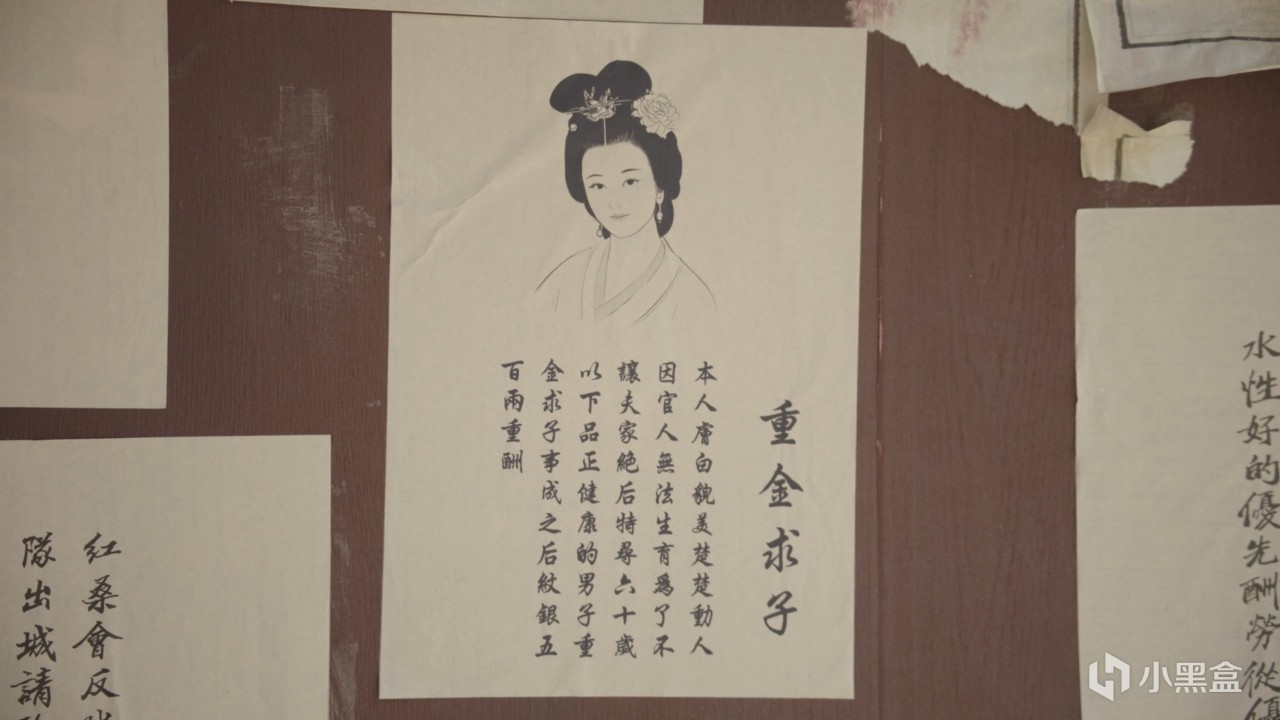 水性好的優先酬勞從優
重金求子
本人膚白貌美楚楚動人
因官人無法生育爲了不
讓夫家絶后特尋六十歲
以下品正健康的男子重
金求子事成之后紋銀五
百兩重酬
紅桑會反
隊出城請
小黑盒